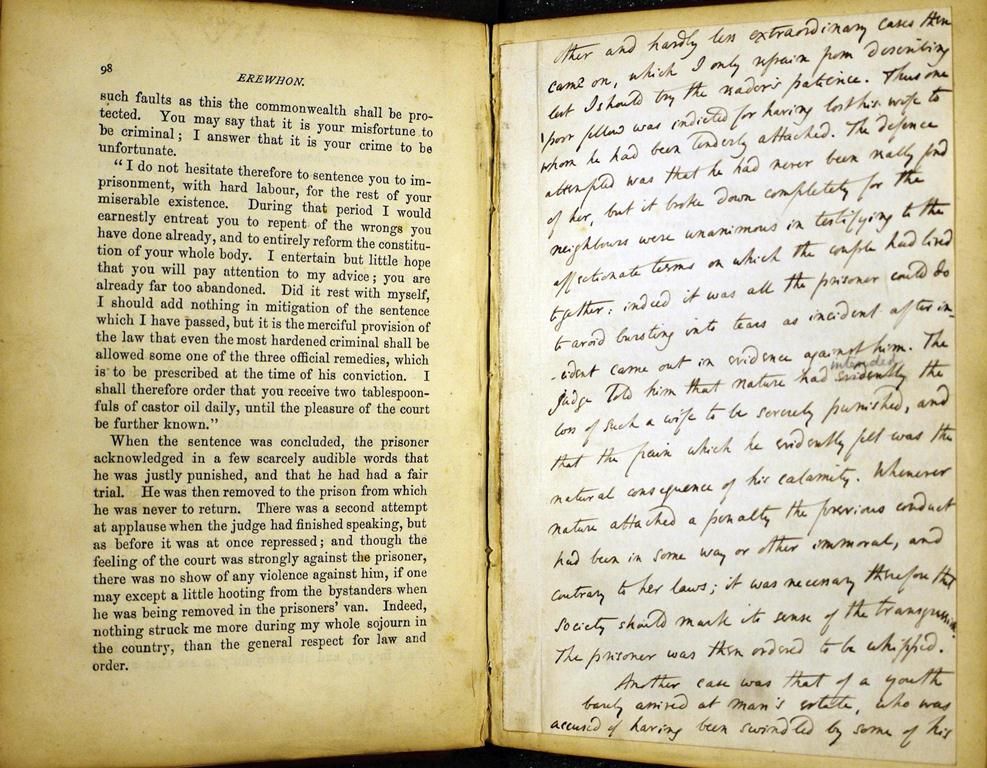 98
EREWHON.
such faults as this the commonwealth shall be pro-
tected. You may say that it is your misfortune to
be criminal; I answer that it is your crime to be
unfortunate.
“I do not hesitate therefore to sentence you to im-
prisonment, with hard labour, for the rest of your
miserable existence. During that period I would
earnestly entreat you to repent of the wrongs you
have done already, and to entirely reform the constitu-
tion of your whole body. I entertain but little hope
that you will pay attention to my advice; you are
already far too abandoned. Did it rest with myself,
I should add nothing in mitigation of the sentence
which I have passed, but it is the merciful provision of
the law that even the most hardened criminal shall be
allowed some one of the three official remedies, which
is to be prescribed at the time of his conviction. I
shall therefore order that you receive two tablespoon-
fuls of castor oil daily, until the pleasure of the court
be further known.”
When the sentence was concluded, the prisoner
acknowledged in a few scarcely audible words that
he was justly punished, and that he had had a fair
trial. He was then removed to the prison from which
he was never to return. There was a second attempt
at applause when the judge had finished speaking, but
as before it was at once repressed; and though the
feeling of the court was strongly against the prisoner,
there was no show of any violence against him, if one
may except a little hooting from the bystanders when
he was being removed in the prisoners' van. Indeed,
nothing struck me more during my whole sojourn in
the country, than the general respect for law and
order.
Other and hardly less extraordinary cases then
came on, which I only refrain from describing
lest I should try the reader's patience. Thus one
poor fellow was indicted for having lost his wife to
whom he had been tenderly attached. The defence
attempted was that he had never been really fond
of her, but it broke down completely for the
neighbours were unanimous in testifying to the
affectionate terms on which the couple had lived
together: indeed it was all the prisoner could do
to avoid bursting into tears as incident after in-
-cident came out in evidence against him. The
intended
judge told him that nature had evidently the
loss of such a wife to be severely punished, and
that the pain which he evidently felt was the
natural consequence of his calamity. Whenever
nature attached a penalty the previous conduct
had been in some way or other immoral, and
contrary to her laws; it was necessary therefore that
society should mark its sense of the transgression.
The prisoner was then ordered to be whipped.
Another case was that of a youth
barely arrived at man's estate, who was
accused of having been swindled by some of his